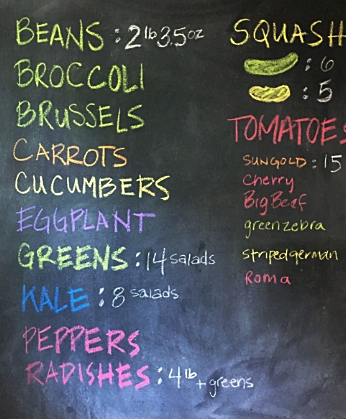 BEANS : 2 lb 3.5 oz
BROCCOLI
BRUSSELS
CARROTS
CUCUMBERS
EGGPLANT
GREENS : 14 salads
KALE : 8 salads
PEPPERS
RADISHES : 4 lb + greens
SQUASH
: 6
: 5
TOMATOES
SUNGOLD : 15
Cherry
Big Beef
greenzebra
stripedgerman
Roma